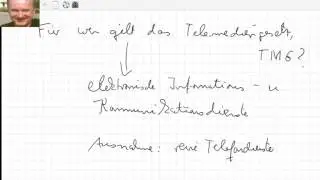 Für wen gilt das Telemediengesetz,
TMG?
elektronische Informations- u
Kommunikationsdienste
Ausnahme: reine Telefondienste